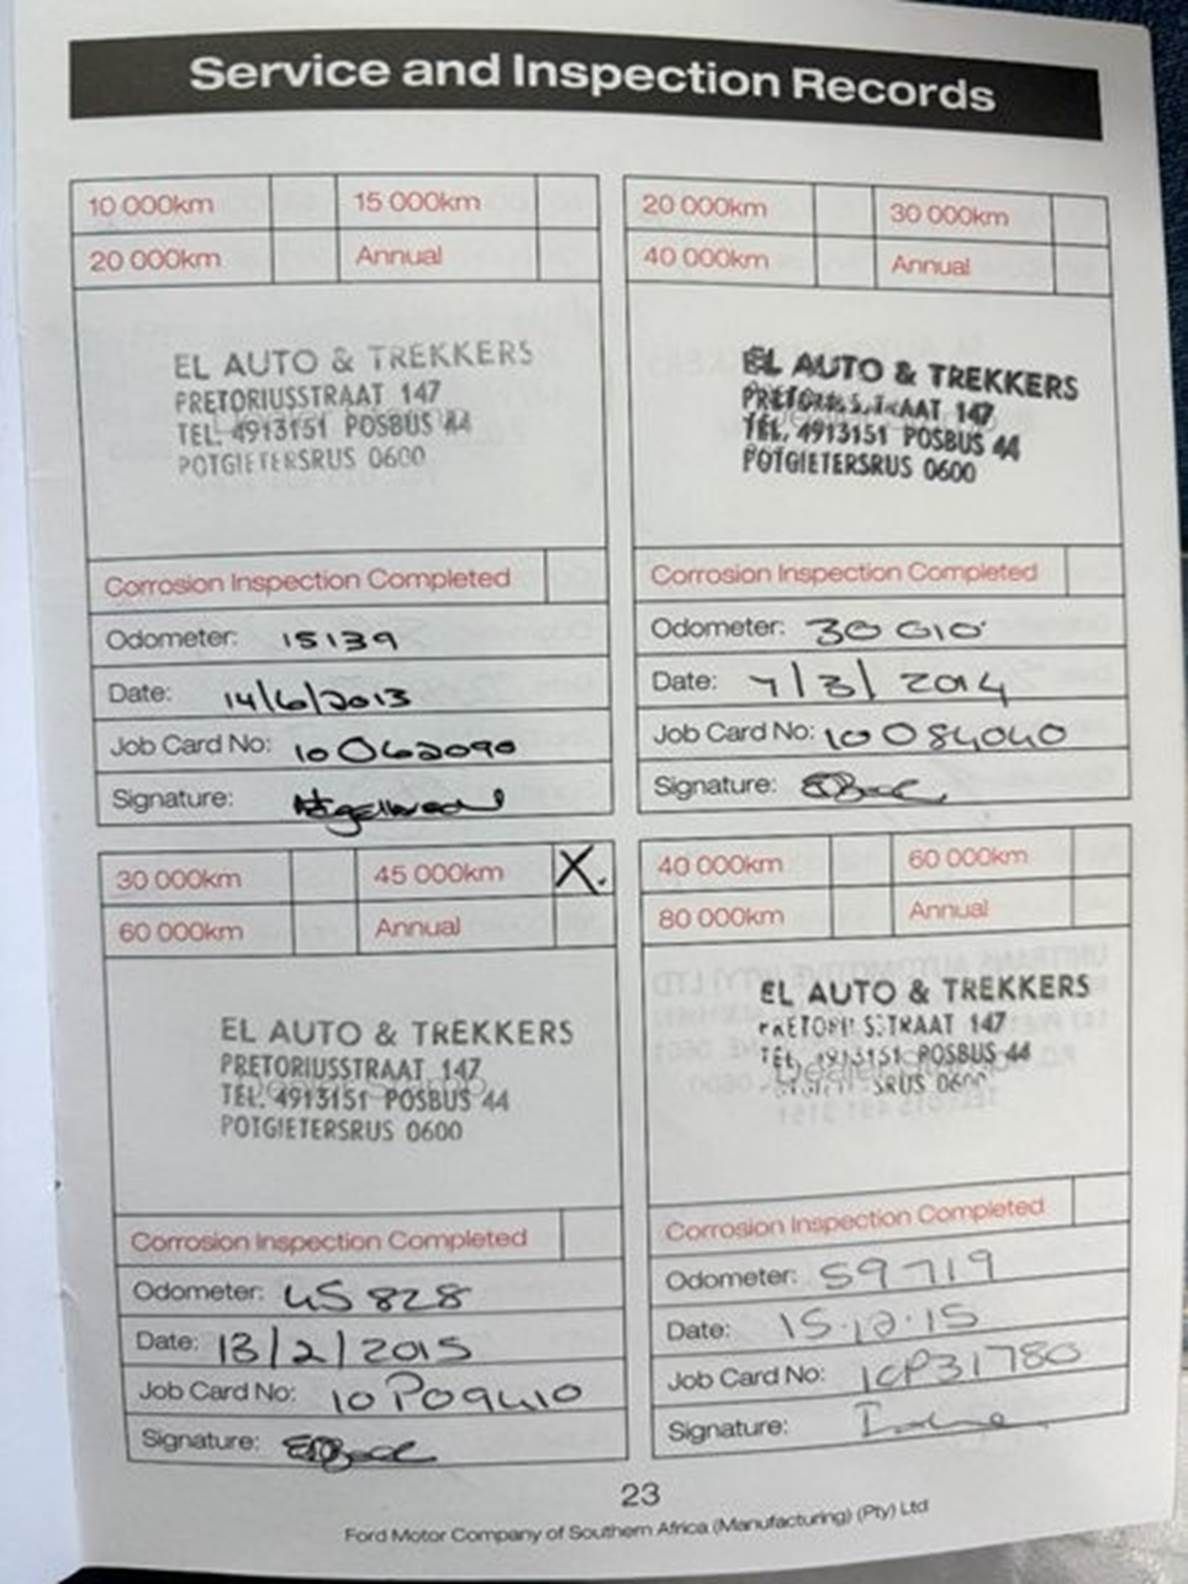 Service and Inspection Records
10 000km 15 000km
20 000km Annual
EL AUTO & TREKKERS
PRETORIUSSTRAAT 147
TEL. 4913151 POSBUS 44
POTGIETERSRUS 0600
Corrosion Inspection Completed
Odometer: 15139
Date: 14/6/2013
Job Card No: 10062090
Signature:
20 000km 30 000km
40 000km Annual
EL AUTO & TREKKERS
PRETORIUSSTRAAT 147
TEL. 4913151 POSBUS 44
POTGIETERSRUS 0600
Corrosion Inspection Completed
Odometer: 30 010
Date: 7/3/2014
Job Card No: 10084040
Signature:
30 000km 45 000km X.
60 000km Annual
EL AUTO & TREKKERS
PRETORIUSSTRAAT 147
TEL. 4913151 POSBUS 44
POTGIETERSRUS 0600
Corrosion Inspection Completed
Odometer: 45 828
Date: 13/2/2015
Job Card No: 10P09410
Signature:
40 000km 60 000km
80 000km Annual
EL AUTO & TREKKERS
PRETORIUSSTRAAT 147
TEL. 4913151 POSBUS 44
POTGIETERSRUS 0600
Corrosion Inspection Completed
Odometer: 59719
Date: 15.12.15
Job Card No: 10P31780
Signature:
23
Ford Motor Company of Southern Africa (Manufacturing) (Pty) Ltd